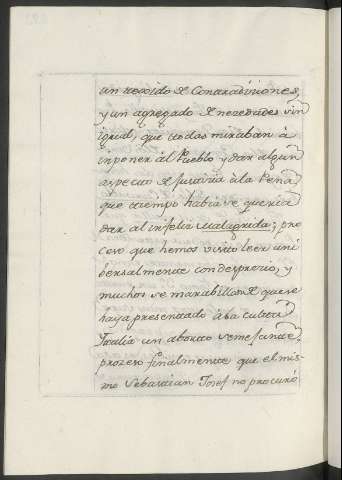 un texido de Contradiciones,
y un agregado de necedades sin
igual, que todas miraban à
inponer àl Pueblo y dar algun
aspecto de Justicia à la Pena,
que tiempo habia se queria
dar al infeliz Malagrida; pro
ceso que hemos visto leer uni
bersalmente con desprecio, y
muchos se marabillan de que se
haya presentado à la culta
Italia un aborto semejante,
prozeso finalmente que el mis-
mo Sebastian Josef no procuró